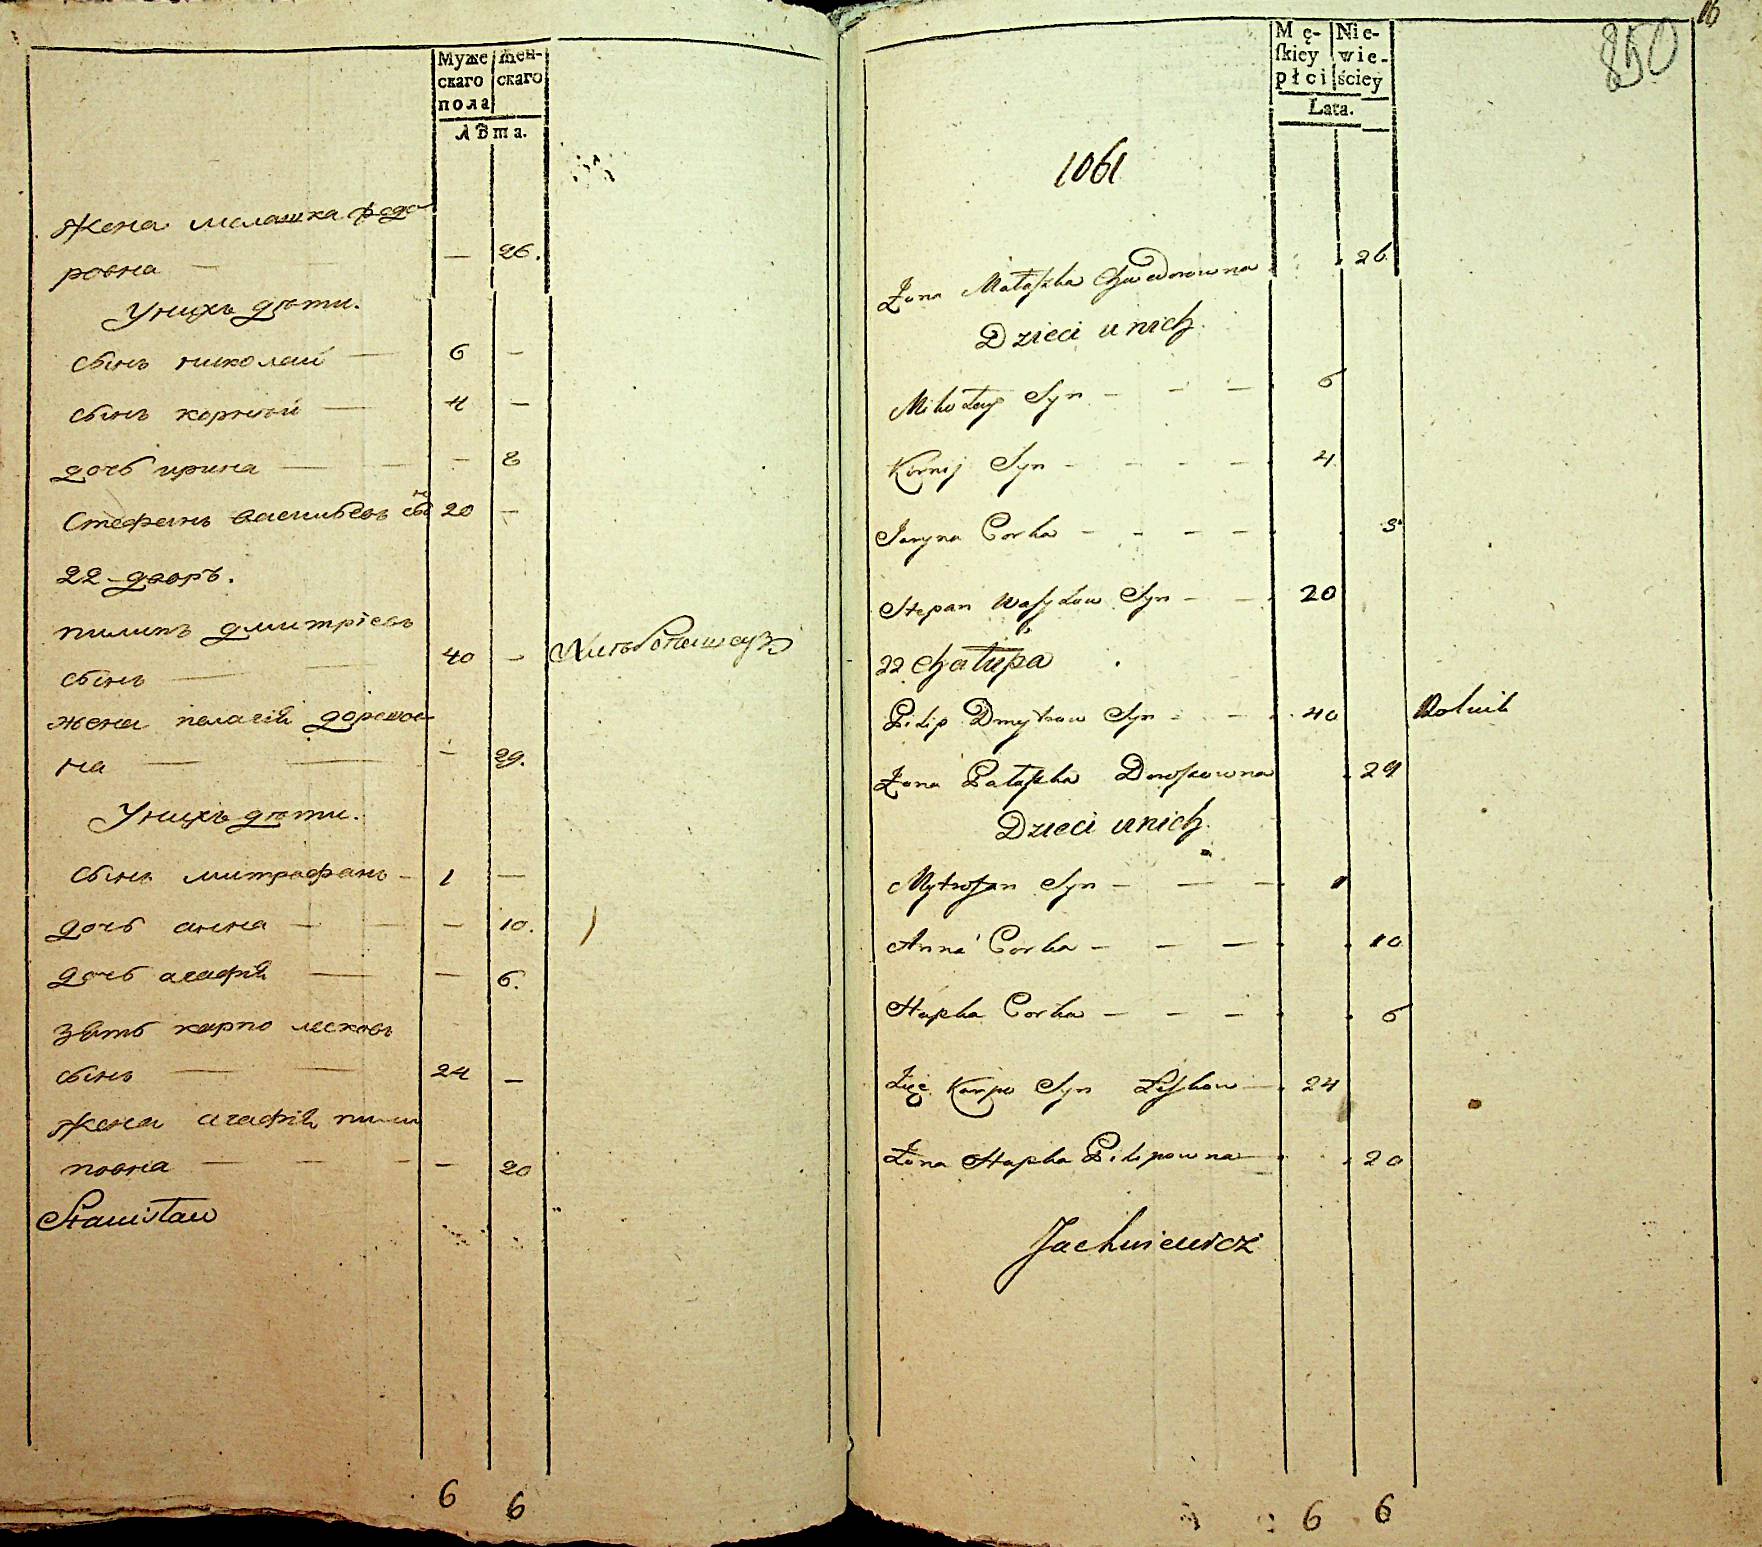 Муже
скаго
пола
Жен-
скаго
лѣта.
Жена малашка федо
ровна — — 26.
У нихъ дѣти.
сынъ николай — 6 —
сынъ корнѣй — 4 —
дочь ирина — — — 8
Стефанъ васильевъ сынъ 20 —
22 – дворъ.
пилипъ дмитріевъ
сынъ — 40 —
жена палагія
на — — — 29.
У нихъ дѣти.
сынъ митрофанъ – 1 —
дочь анна — — — 10.
дочь агафія — — 6.
зять карпо лесковъ
сынъ — — 24 —
Жена агафія пили
повна — — - — 20
Stanisław
6 6
16
850
Mę-
ſkiey
płci
Nie-
wie-
ściey
Lata.
1061
Żona Małaſzka Chwedorowna 26
Dzieci u nich
Mikołay Syn - - — 6
Korniy Syn - - - - 4
Jaryna Corka - - - - 8
Stepan Waſylow Syn - - 20
22 Chałupa
Pilip Dmytrow Syn - - 40 Rolnik
Żona Pałaſzka 29
Dzieci u nich
Mytrofan Syn - — — 1
Anna Corka - — — 10
Hapka Corka — — - 6
Zięć Karpo Syn Leſkow — 24
Żona Hapka Pilipowna — 20
Jachniewicz
6 6